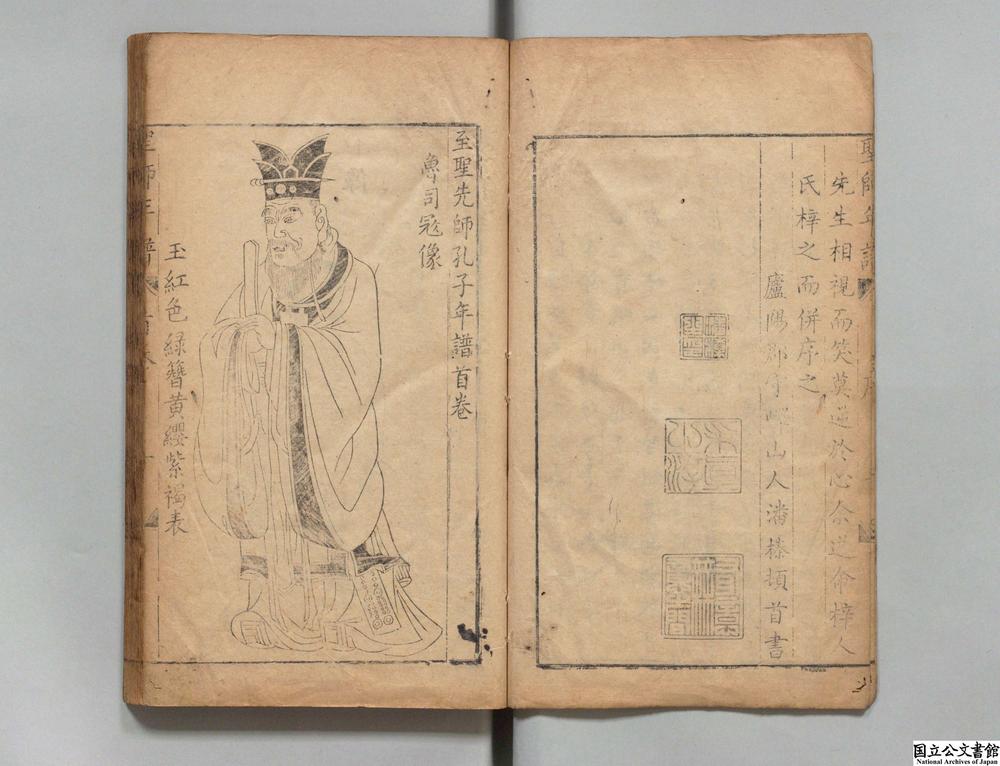 聖師年譜
先生相視而笑莫逆於心余遂命梓人
氏梓之而併序之
廬陽郡守岷山人潘榛頓首書
至聖先師孔子年譜首卷
魯司寇像
玉紅色緑簪黄纓紫襈表
聖師年譜
国立公文書館
National Archives of Japan